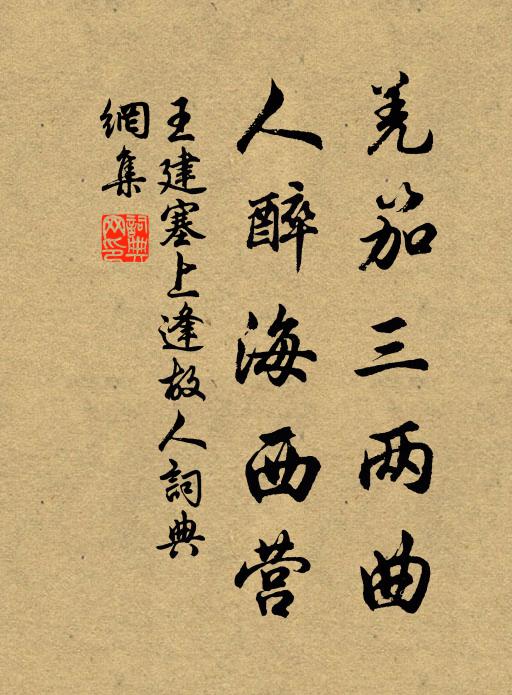 羌笳三两曲
人醉海西营
王建塞上逢故人詞典
網集
詞典网印